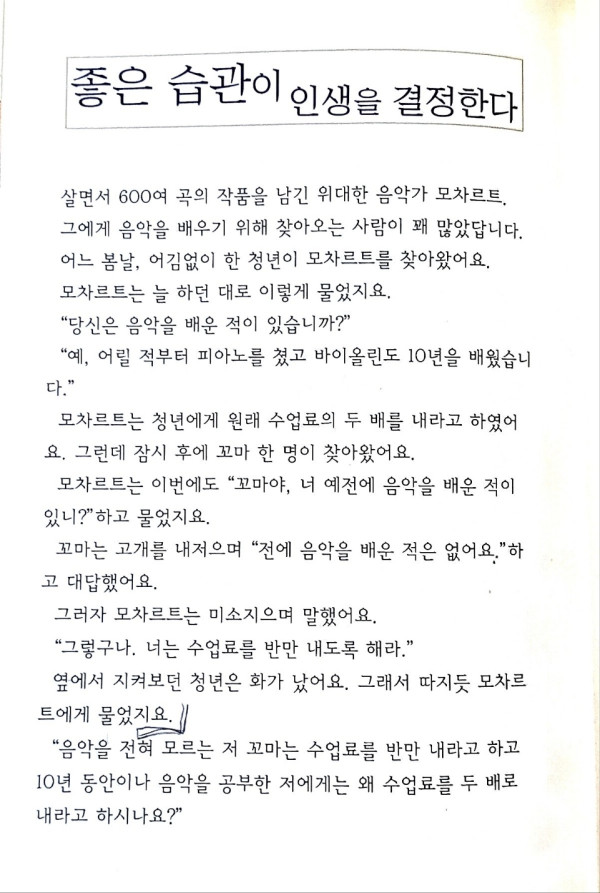 좋은 습관이 인생을 결정한다
살면서 600여 곡의 작품을 남긴 위대한 음악가 모차르트.
그에게 음악을 배우기 위해 찾아오는 사람이 꽤 많았답니다.
어느 봄날, 어김없이 한 청년이 모차르트를 찾아왔어요.
모차르트는 늘 하던 대로 이렇게 물었지요.
“당신은 음악을 배운 적이 있습니까?”
“예, 어릴 적부터 피아노를 쳤고 바이올린도 10년을 배웠습니
다.”
모차르트는 청년에게 원래 수업료의 두 배를 내라고 하였어
요. 그런데 잠시 후에 꼬마 한 명이 찾아왔어요.
모차르트는 이번에도 “꼬마야, 너 예전에 음악을 배운 적이
있니?”하고 물었지요.
꼬마는 고개를 내저으며 “전에 음악을 배운 적은 없어요.”하
고 대답했어요.
그러자 모차르트는 미소지으며 말했어요.
“그렇구나. 너는 수업료를 반만 내도록 해라.”
옆에서 지켜보던 청년은 화가 났어요. 그래서 따지듯 모차르
트에게 물었지요.
“음악을 전혀 모르는 저 꼬마는 수업료를 반만 내라고 하고
10년 동안이나 음악을 공부한 저에게는 왜 수업료를 두 배로
내라고 하시나요?”